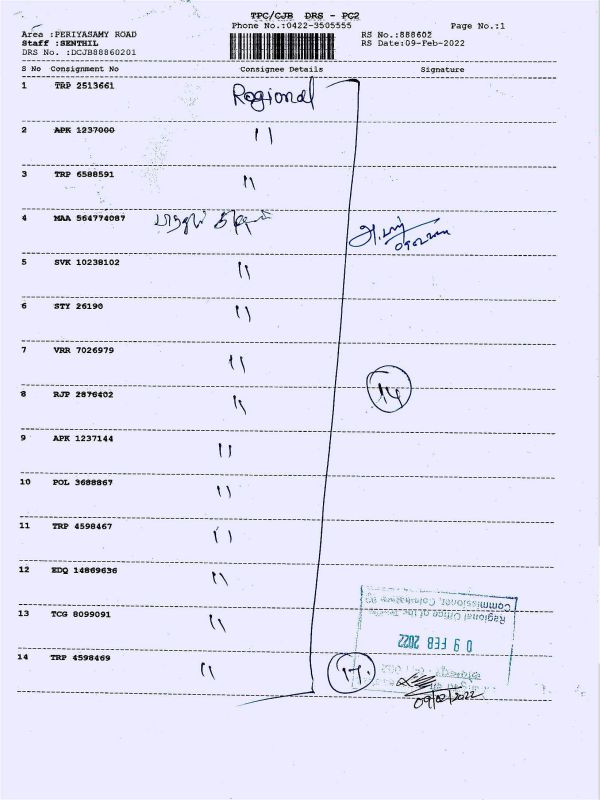 TPC/CJB DRS - PC2
Phone No.:0422-3505555 Page No.:1
Area :PERIYASAMY ROAD RS No.:888602
Staff :SENTHIL RS Date:09-Feb-2022
DRS No. :DCJB88860201
S No Consignment No Consignee Details Signature
1 TRP 2513661 Regional
2 APK 1237000 "
3 TRP 6588591 "
4 MAA 564774087
09.02.2022
5 SVK 10238102 "
6 STY 26190 "
7 VRR 7026979 "
14
8 RJP 2876402 "
9 APK 1237144 "
10 POL 3688867 "
11 TRP 4598467 "
12 EDQ 14869636 "
13 TCG 8099091 "
Regional Office of the
Commissioner, Coimbatore
09 FEB 2022
14 TRP 4598469 "
09/02/2022